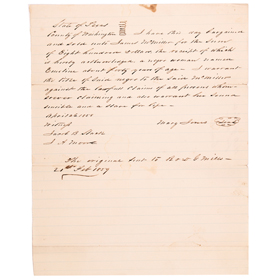 State of Texas
County of Washington I have this day bargained
and Sold unto James W Miller for the Sum
of Eight hundred Dollars the receipt of which
is hereby acknowledged a negro woman named
Emeline about forty years of age I warrant
the title of Said negro to the Said Miller
against the lawful Claims of all persons whom-
soever Claiming and also warrant her Sound
and a Slave for life
April
Mary [Seal]
Jacob B
The original sent to
20th Feb 1859